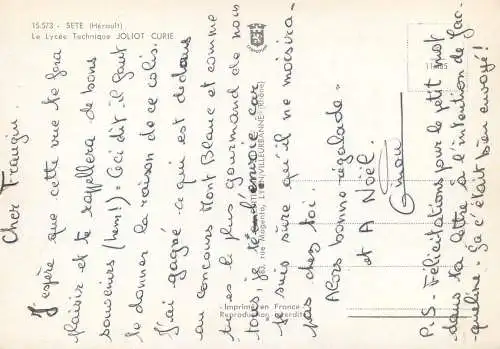 15.573 - SETE (Hérault)
Le Lycée Technique JOLIOT CURIE
Cher Frangin.
J'espère que cette vue te fera
plaisir et te rappellera de bons
souvenirs (hem!) = Ceci dit il faut
te donner la raison de ce colis.
J'ai gagné ce qui est dedans
au concours Mont Blanc et comme
tu es le plus gourmand de nous
tous, je te l'envoie car
je suis sûre qu'il ne moisira
pas chez toi.
Alors bonne régalade =
et A Noël.
P.S - Félicitations pour le petit mot
dans ta lettre à l'intention de Jac-
queline = Ça c'était bien envoyé!
rue Magenta, VILLEURBANNE (Rhône)
- Imprimé en France -
Reproduction interdite